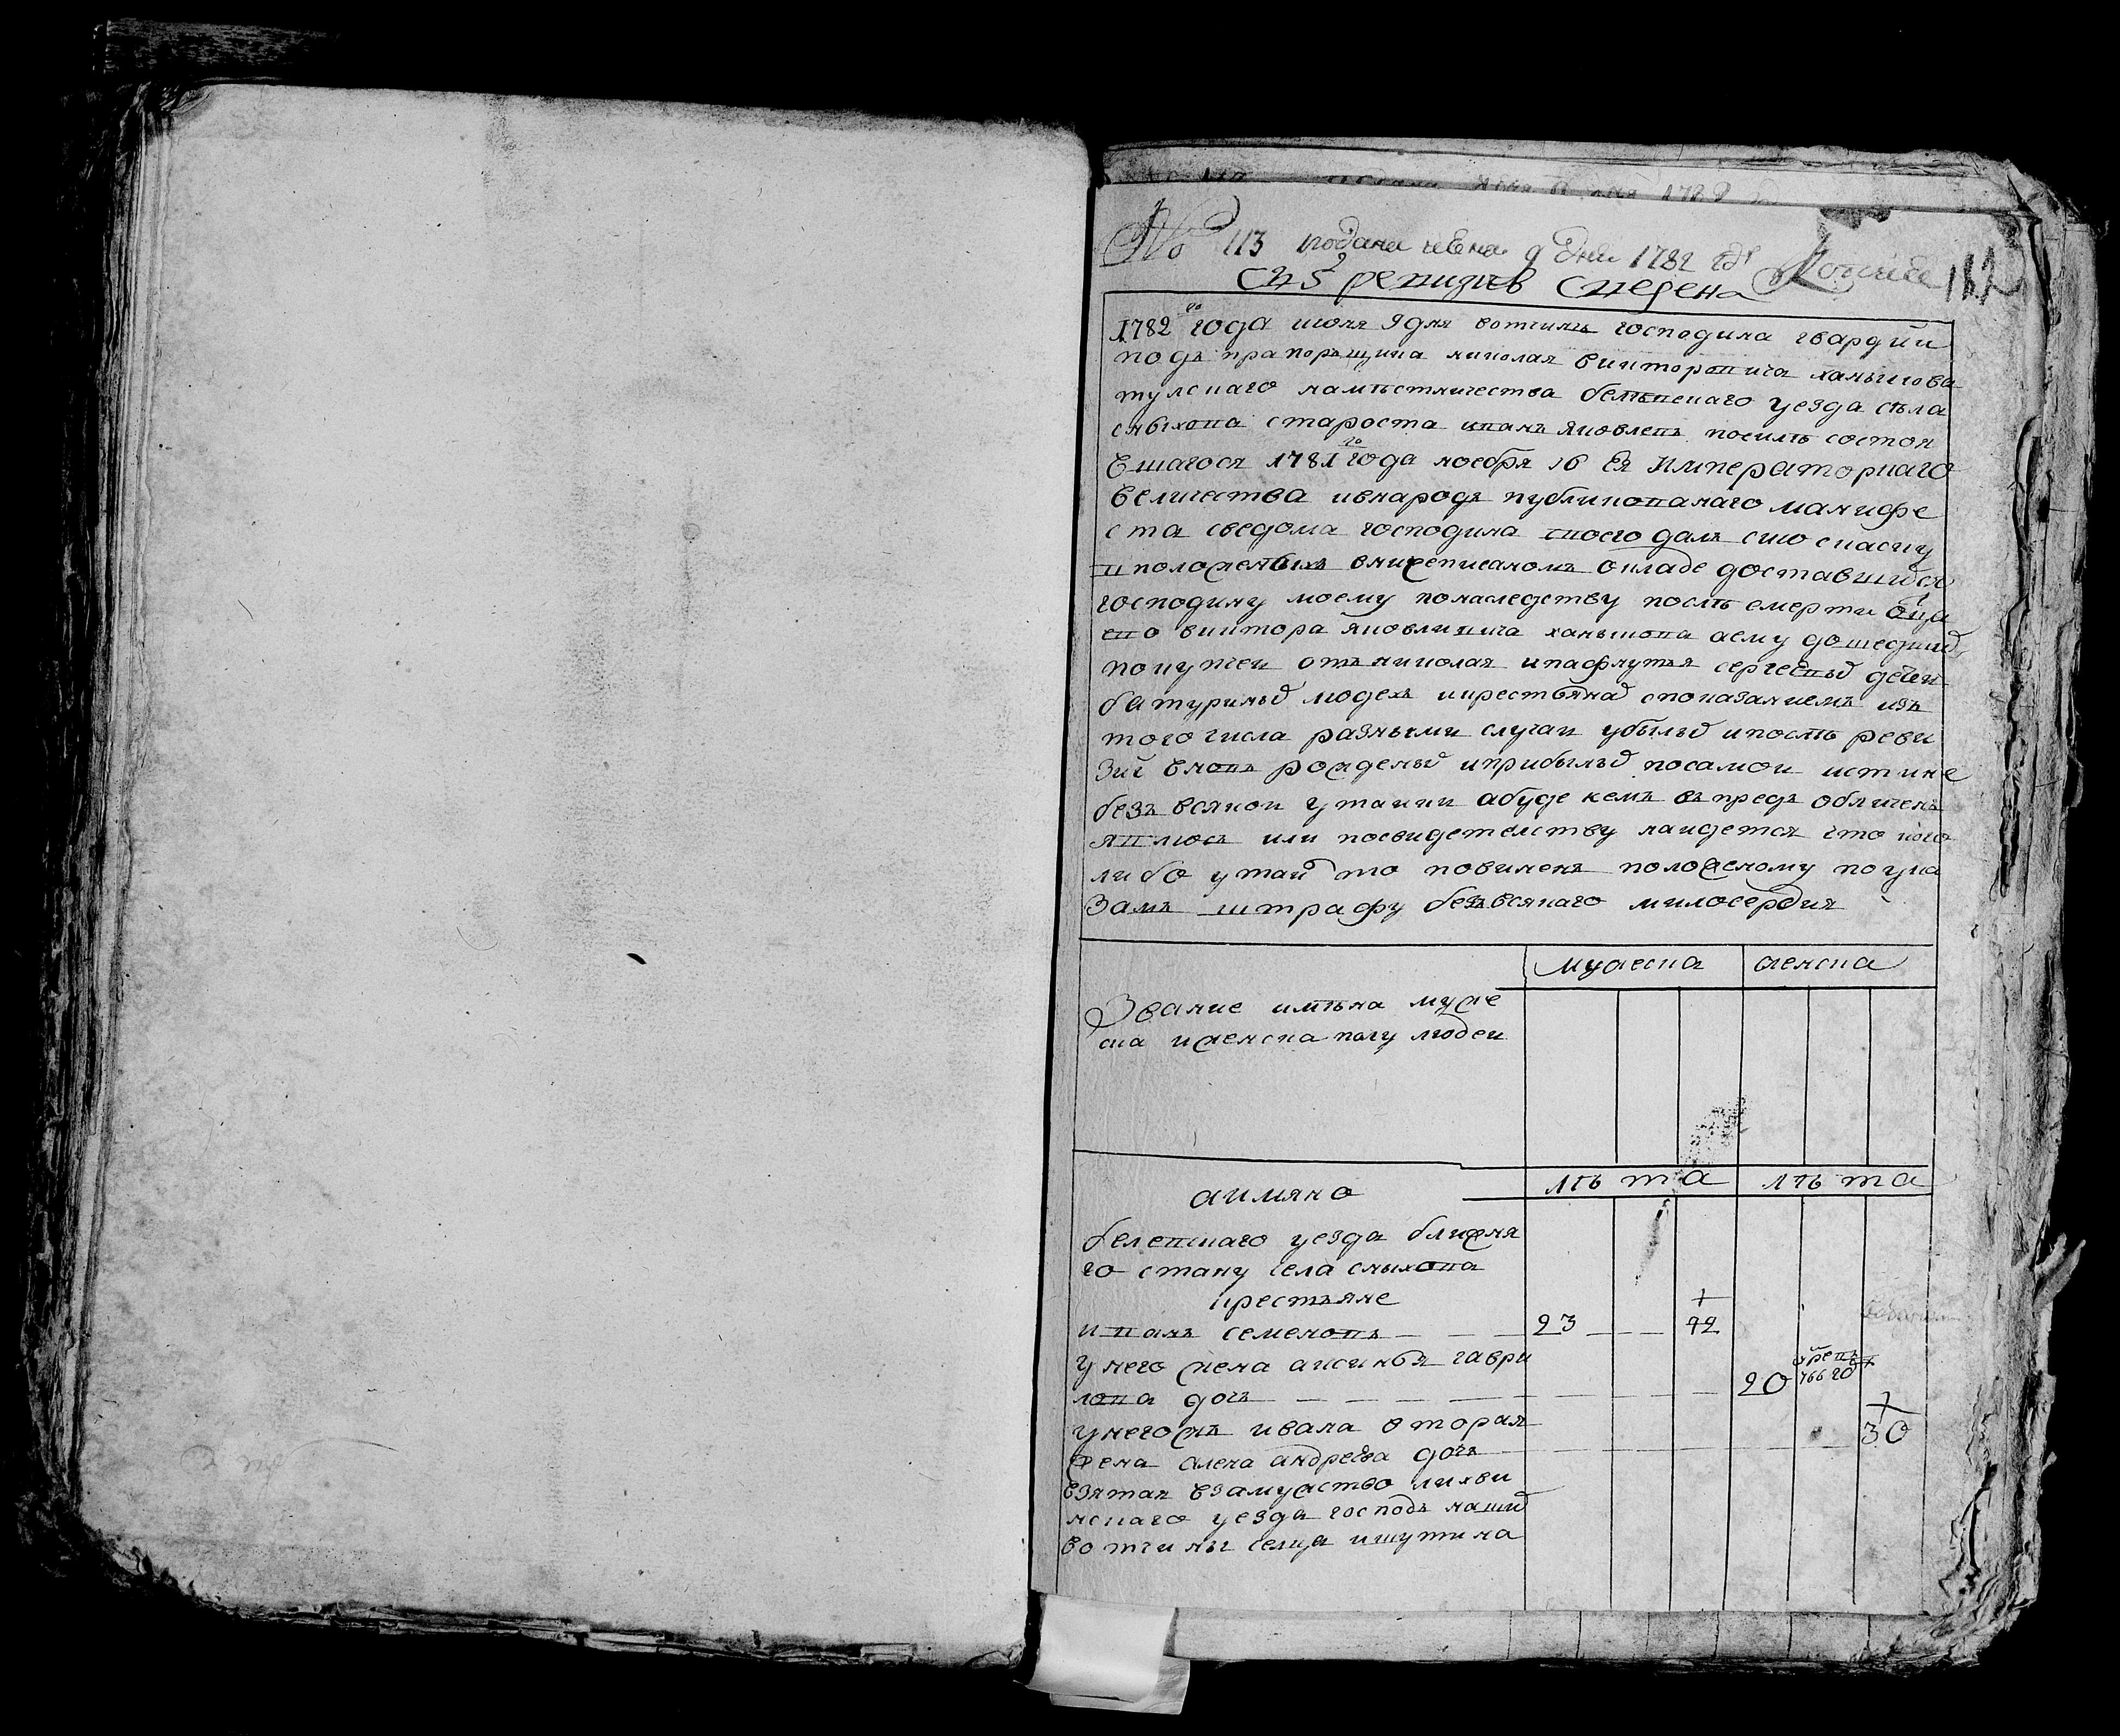 № 113 подана июня 9 дня 1782 году
съ 3 ревизиев сведена
182
1782 го года июня 9 дня вотчинъ господина гвардии
подъ прапорьщика николая викторовича ханыкова
тулскаго намѣстничества белѣвскаго уезда сѣла
сныхова староста иванъ яковлевъ посилѣ состоя
вшагося 1781 го года ноебря 16 Ея Императорскаго
величества ивнародъ публикованаго манифе
ста сведома господина своего далъ сию скаску
о положеныхъ внижеписаномъ окладе доставшихся
господину моему понаследству послѣ смерти отца
ево виктора яковливича ханыкова аему дошедших
покупкеи отъ николая ипафнутья сергеевых детеи
батуриных людехъ икрестьянах споказаниемъ изъ
того числа разными случаи убылых ипослѣ реви
зии вновъ рожденых иприбылых посамои истине
безъ всякои утаики абуде кемъ въпредъ обличенъ
явлюсь или посвидетелству наидется что кого
либо утаил то повиненъ положеному поука
замъ штрафу безъ всякаго милосердия
мужеска женска
Звание имѣна муже
ска иженска полу людеи
лѣта лѣта
аимяно
белевскаго уезда ближня
го стану села сныхова
крестьяне
иванъ семеновъ 23 42
унего жена аксинья гаври
лова дочь 20 766 20
унегожъ ивана вторая 30
жена алена андреева дочь
взятая взамужство лихви
нскаго уезда господъ наших
вотчины селца ишутина